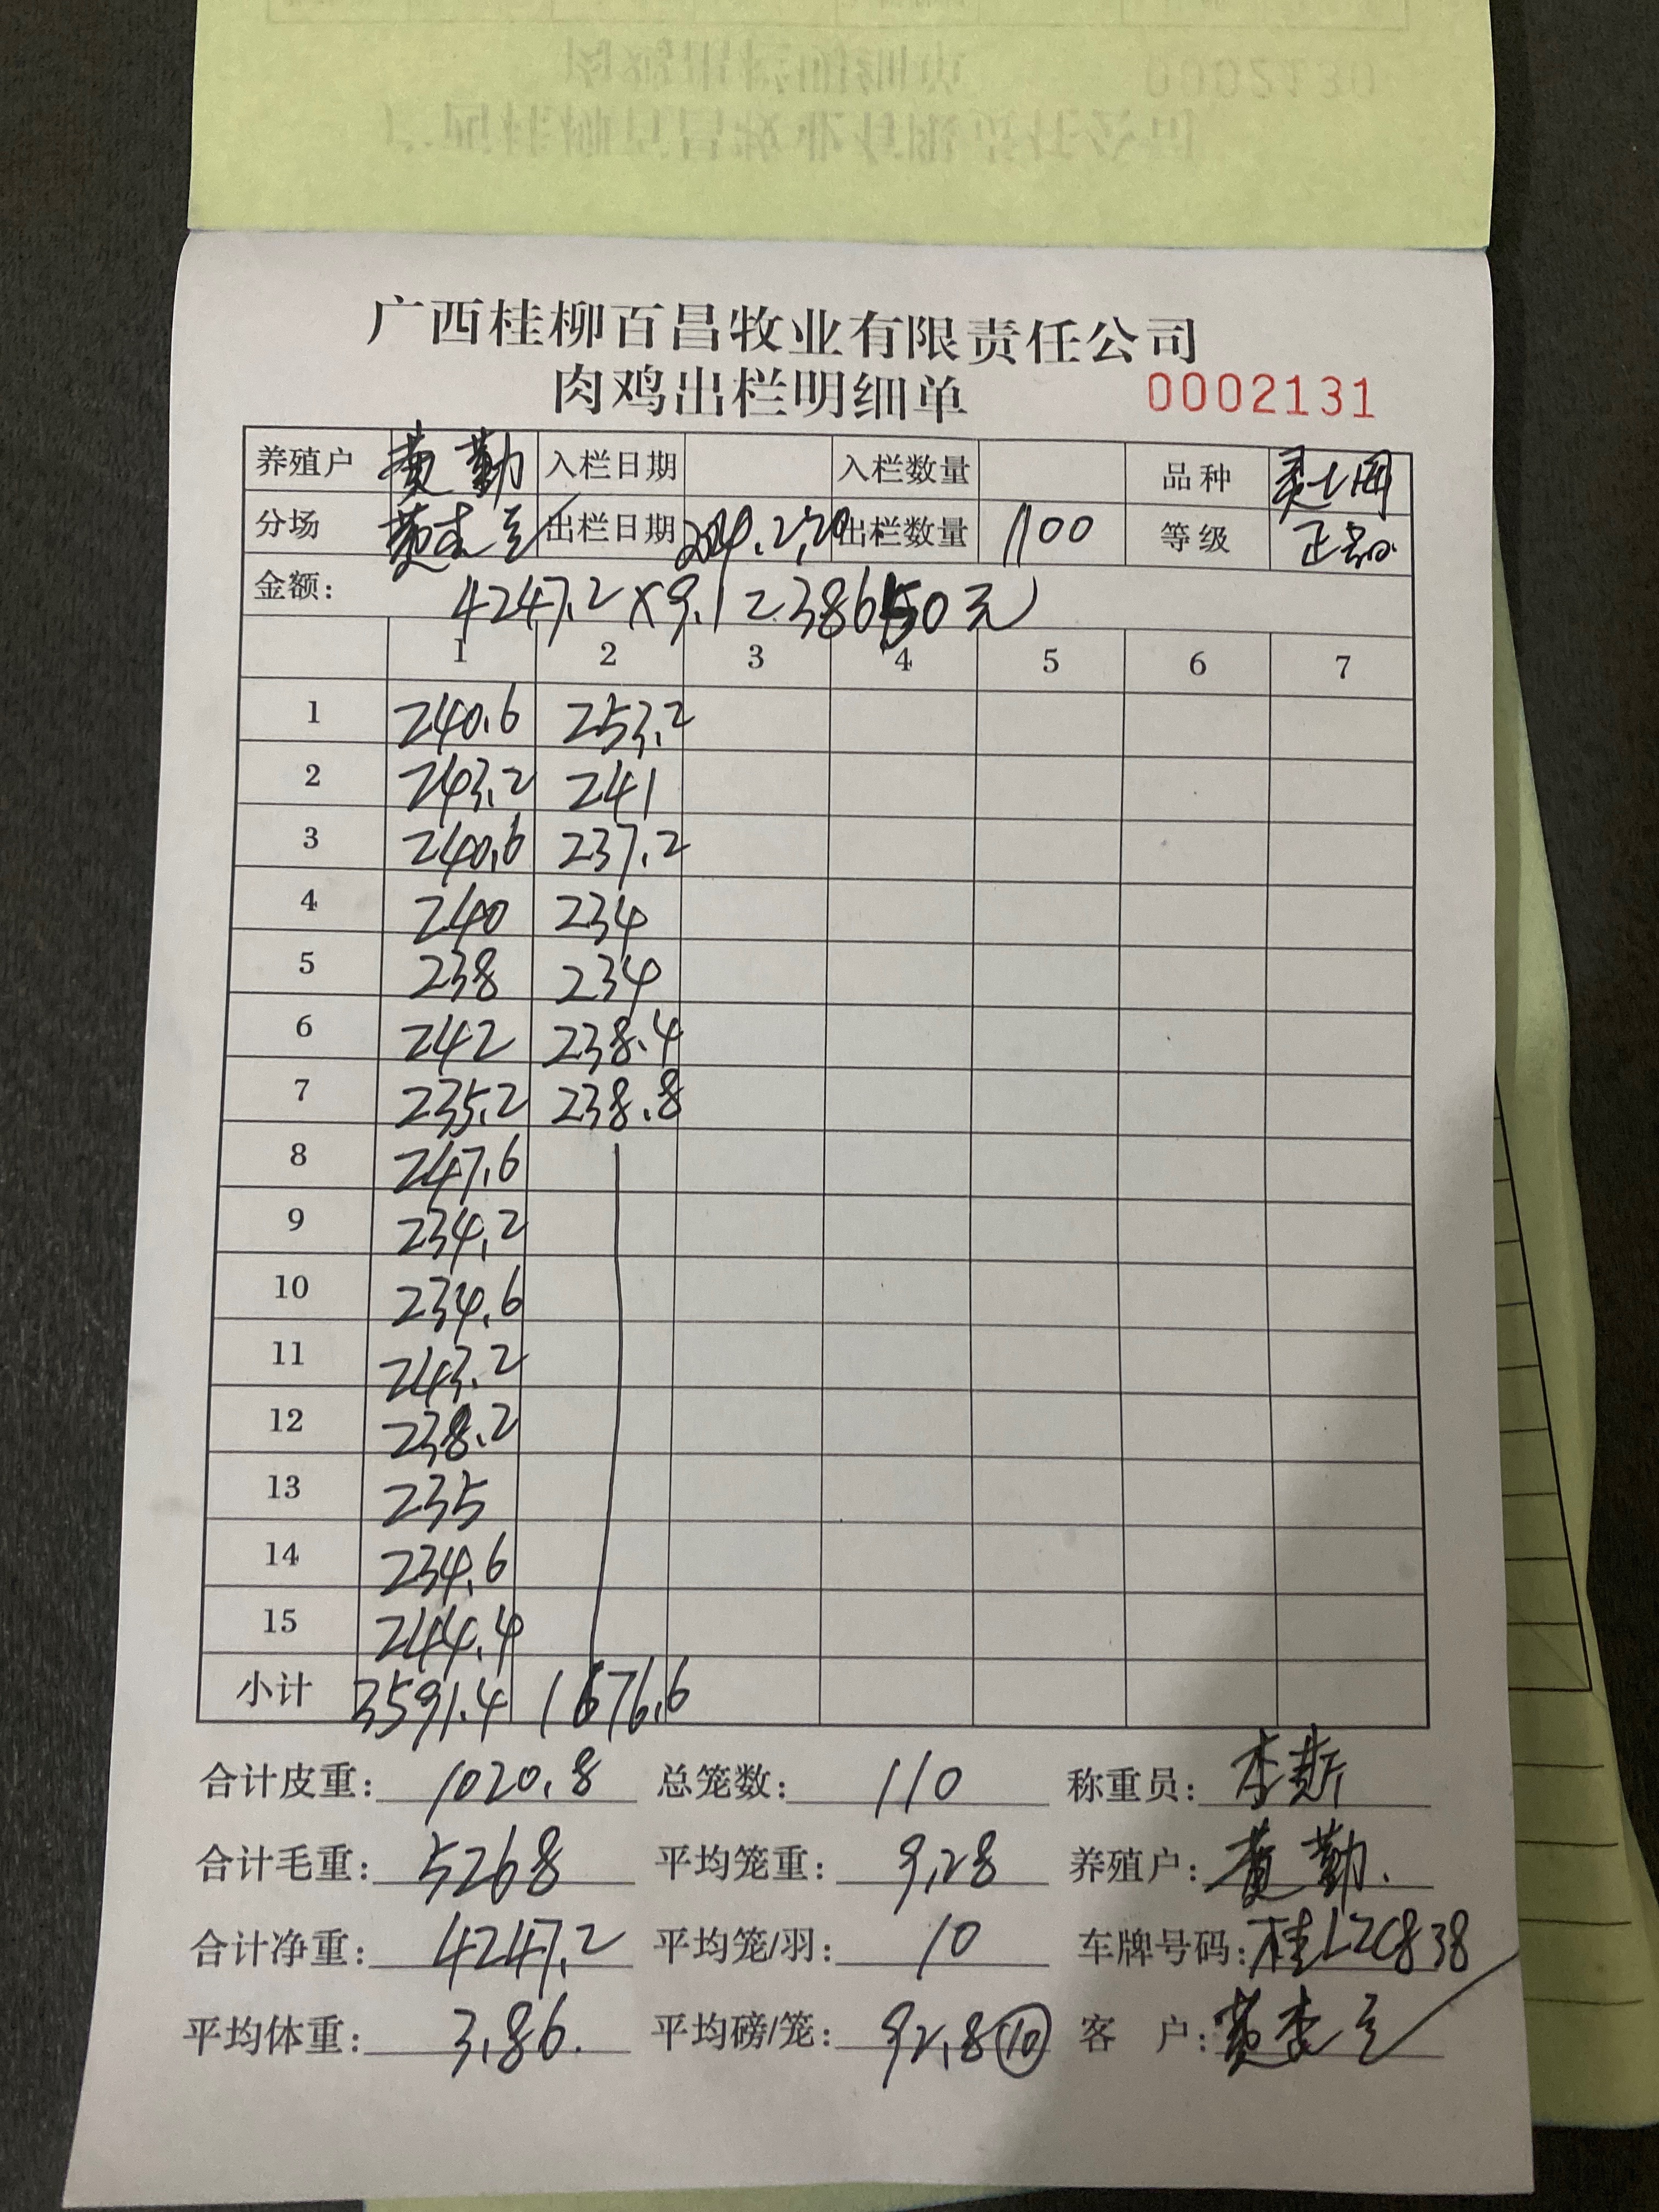 0002130
广西桂柳百昌牧业有限责任公司
肉鸡出栏明细单 0002131
养殖户 黄勤 入栏日期 入栏数量 品种
分场 出栏日期 出栏数量 1100 等级 正品
金额: 4247.2×9.1=38650元
1 2 3 4 5 6 7
1 240.6 253.2
2 243.2 241
3 240.6 237.2
4 240 234
5 238 234
6 242 238.4
7 235.2 238.8
8 247.6
9 234.2
10 234.6
11 243.2
12 238.2
13 235
14 234.6
15 244.4
小计 3591.4 1676.6
合计皮重: 1020.8 总笼数: 110 称重员: 李
合计毛重: 5268 平均笼重: 9.28 养殖户: 黄勤.
合计净重: 4247.2 平均笼/羽: 10 车牌号码: 桂LZC838
平均体重: 3.86. 平均磅/笼: 92.8 10 客户: